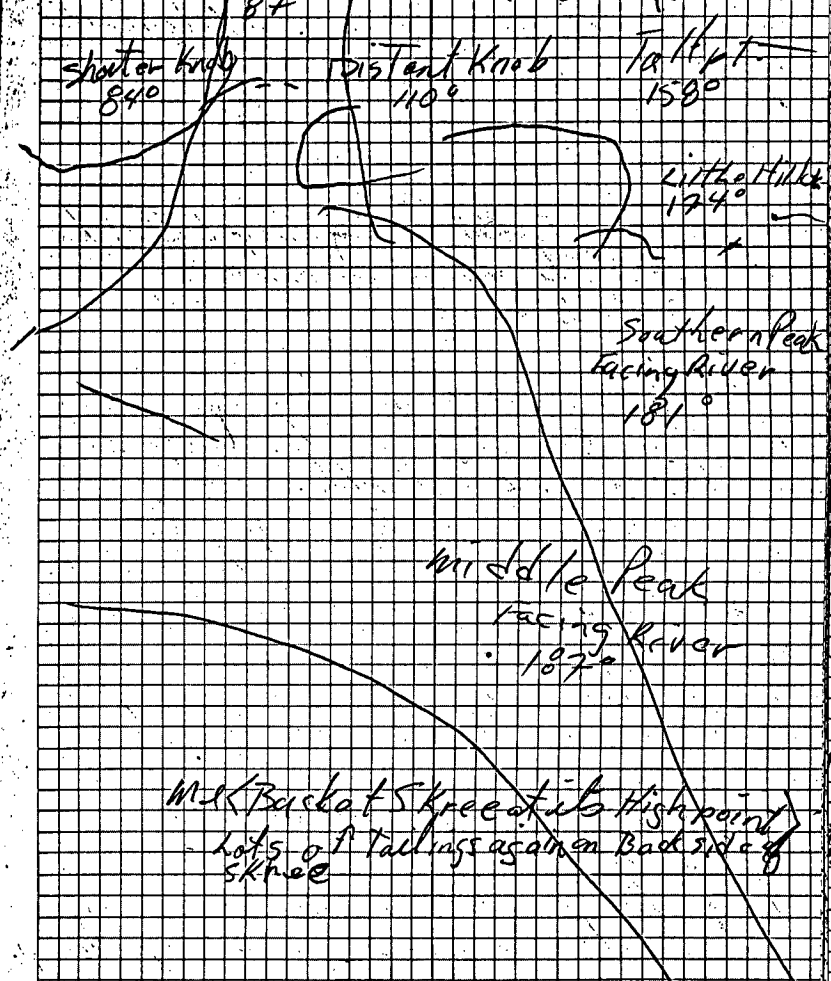 84
shorter Knob
84°
Distant Knob
110°
Tall pt.
158°
Little Hill
174°
Southern Peak
Facing River
181°
Middle Peak
Facing River
187°
Me < Back of SKree at its High point >
Lots of Tailings again on Back side of
SKree